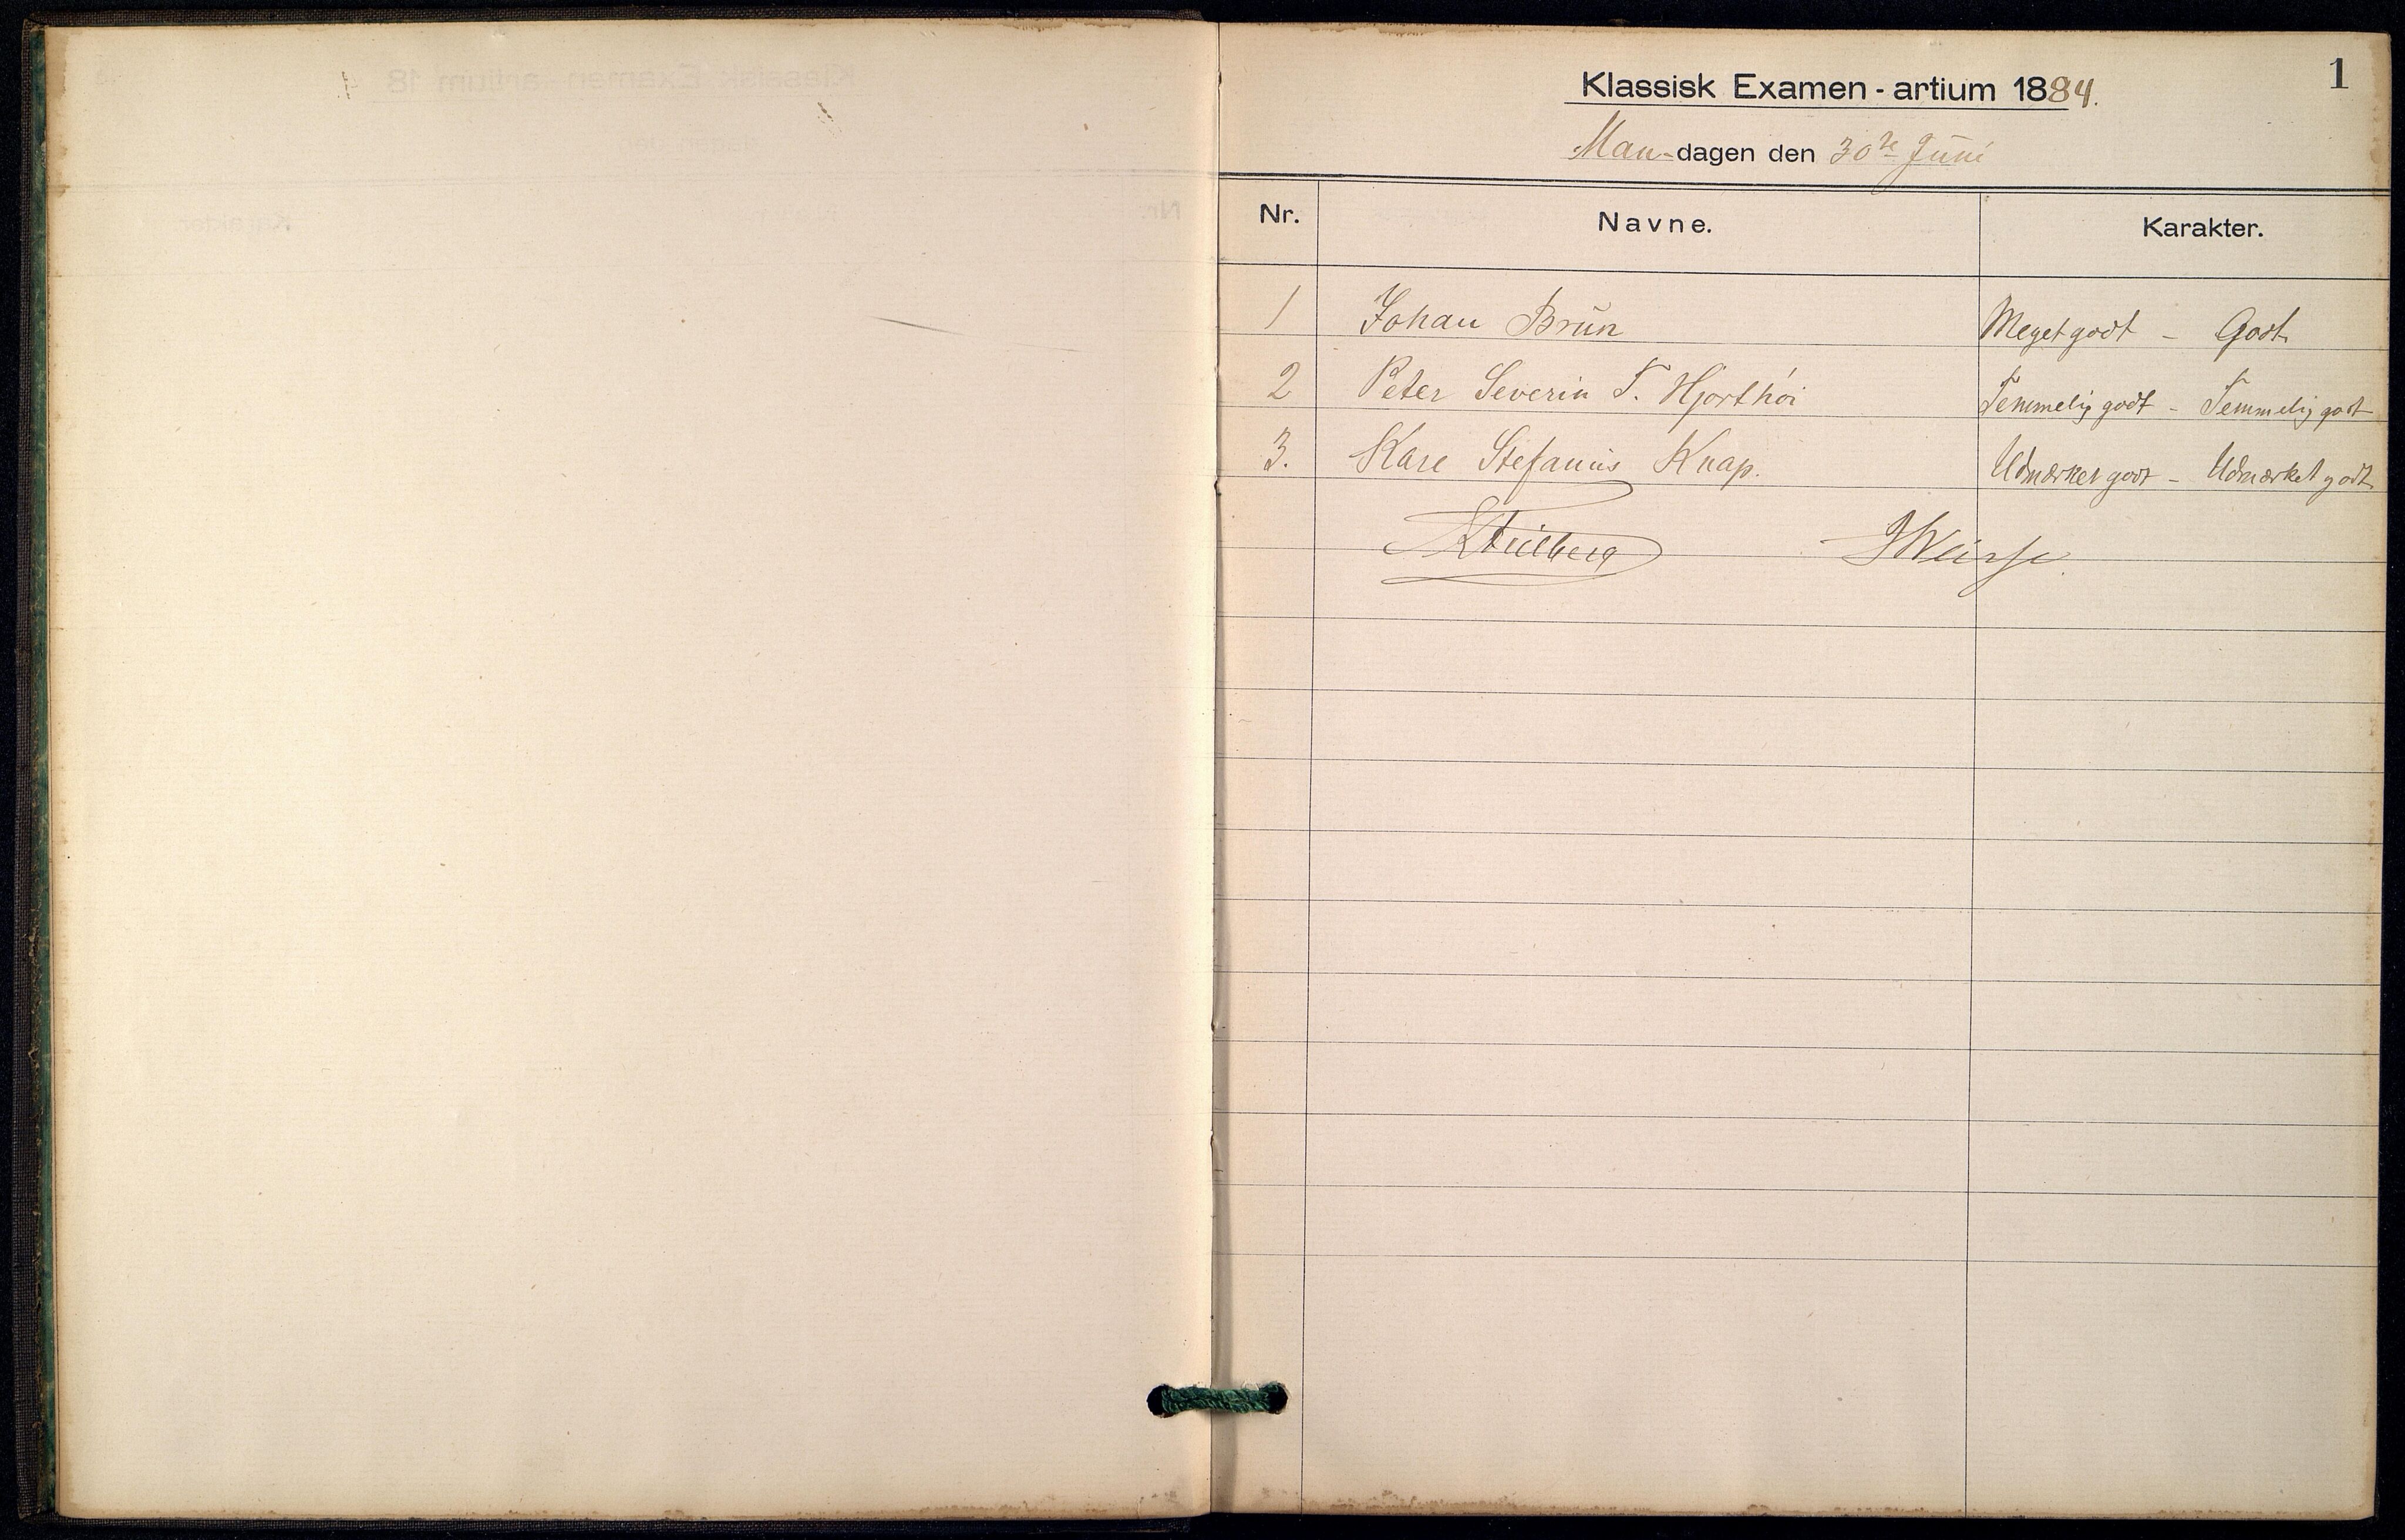 1
Klassisk Examen - artium 1884.
Man-dagen den 30te Juni
Nr. Navne. Karakter.
1 Johan Brun Meget godt - Godt
2 Peter Severin T. Hjorthöi Temmelig godt - Temmelig godt
3. Kare Stefanus Knap. Udmærket godt - Udmærket godt